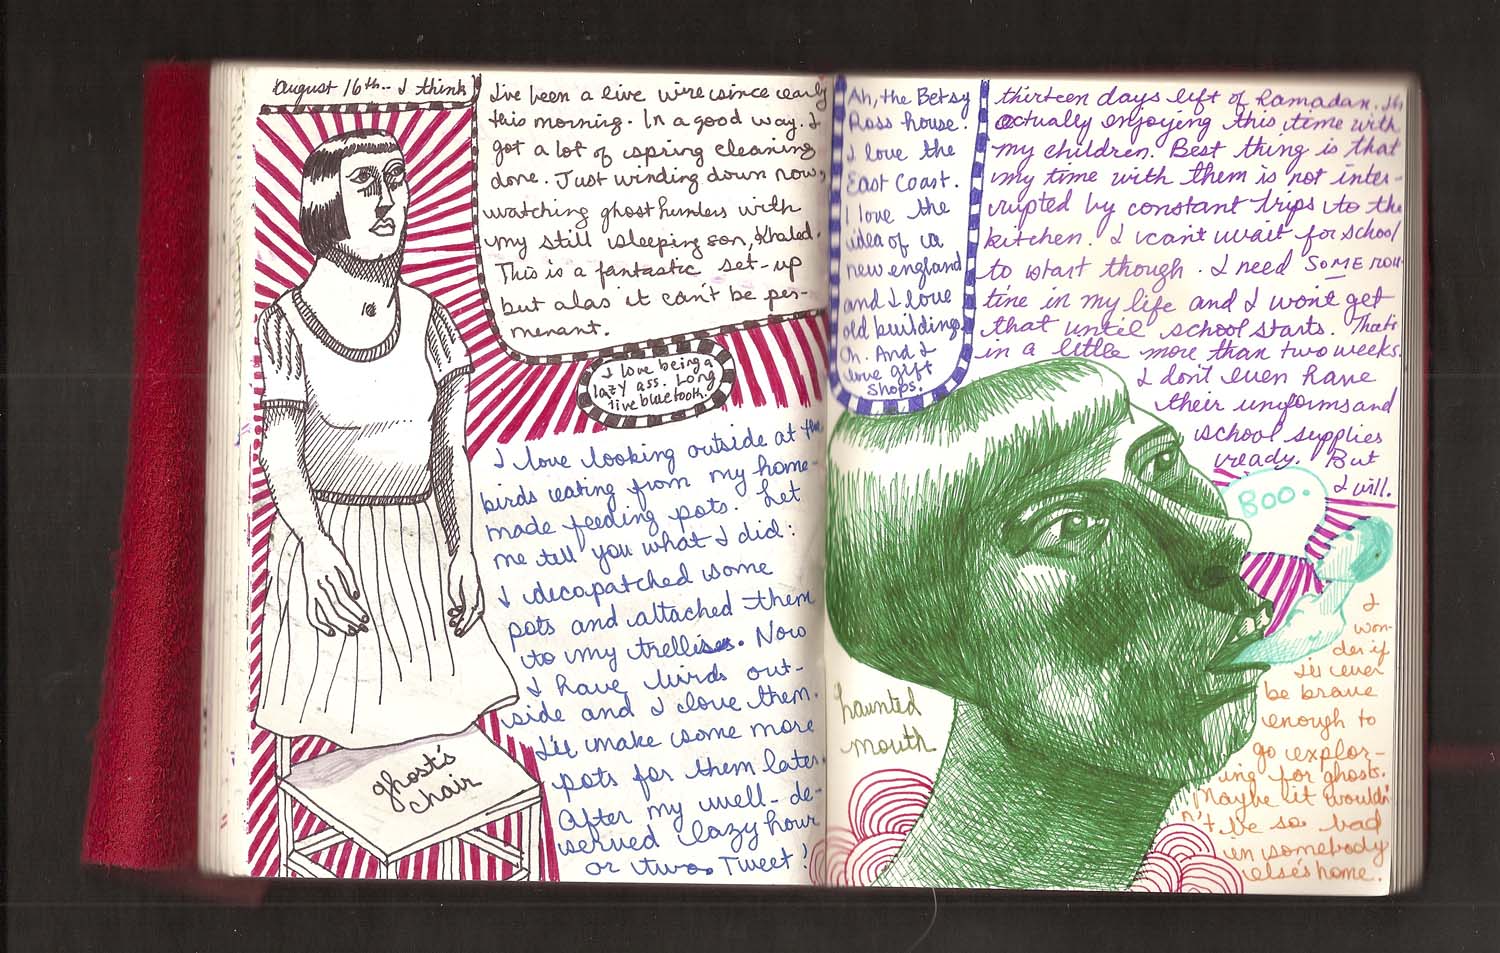 August 16th.. I think
I've been a live wire since early
this morning. In a good way. I
got a lot of spring cleaning
done. Just winding down now,
watching ghosthunters with
my still sleeping son, Khaled.
This is a fantastic set-up
but alas it can't be per-
menant.
I love being a
lazy ass. Long
live bluetooth.
I love looking outside at the
birds eating from my home-
made feeding pots. Let
me tell you what I did:
I decapatched some
pots and attached them
to my trellises. Now
I have birds out-
side and I love them.
I'll make some more
pots for them later.
After my well-de-
served lazy hour
or two. Tweet!
ghost's
chair
Ah, the Betsy
Ross house.
I love the
East Coast.
I love the
idea of a
new england
and I love
old buildings.
Oh. And I
love gift
shops.
thirteen days left of Ramadan. I'm
actually enjoying this time with
my children. Best thing is that
my time with them is not inter-
rupted by constant trips to the
kitchen. I can't wait for school
to start though. I need SOME rou-
tine in my life and I won't get
that until school starts. That's
in a little more than two weeks.
I don't even have
their uniforms and
school supplies
ready. But
I will.
BOO.
haunted
mouth
I
won-
der if
I'll ever
be brave
enough to
go explor-
ing for ghosts.
Maybe it would-
n't be so bad
in somebody
else's home.